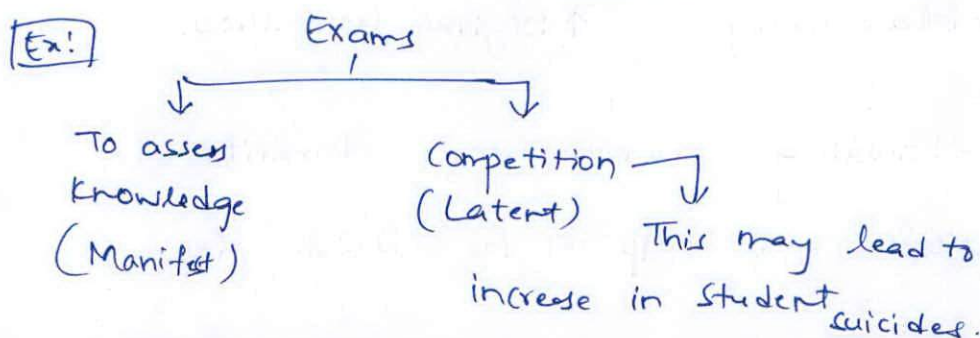 Ex!
Exams
To assess
knowledge
(Manifest)
Competition
(Latent)
This may lead to
increase in student suicides.